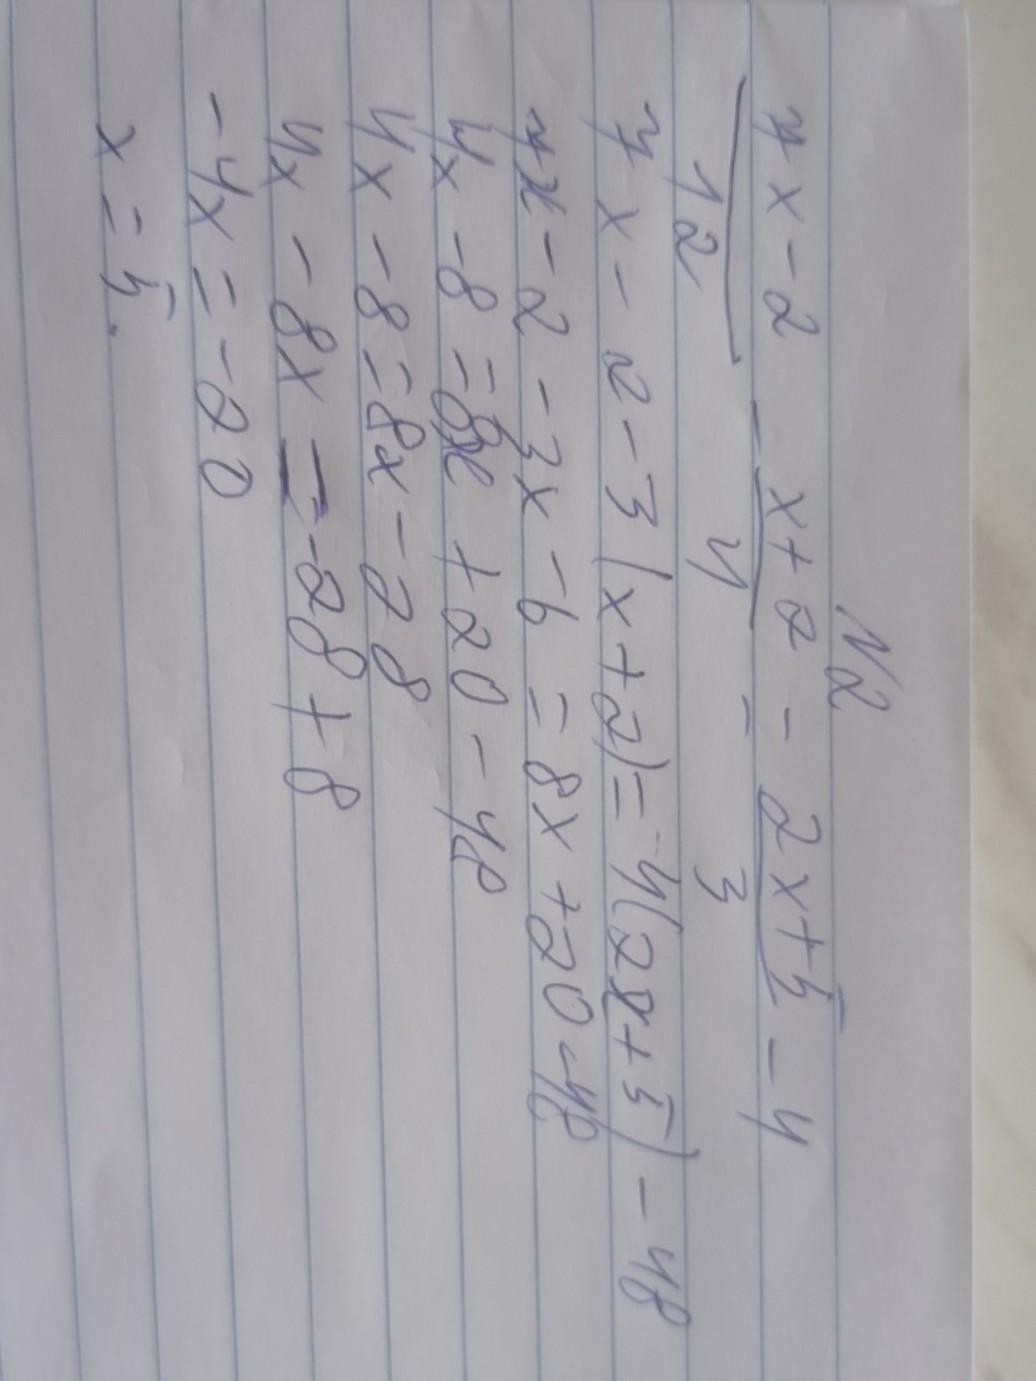 N2
7x-2 - x+2 = 2x+5 - 4
12 4 3
7x-2-3(x+2)=4(2x+5)-48
7x-2-3x-6=8x+20-48
4x-8=8x+20-48
4x-8=8x-28
4x-8x=-28+8
-4x=-20
x=5.